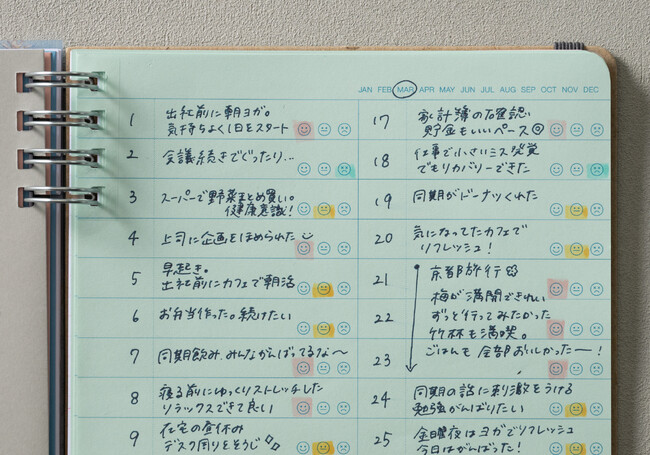 JAN FEB MAR APR MAY JUN JUL AUG SEP OCT NOV DEC
1 出社前に朝ヨガ。
気持ちよく1日をスタート
2 会議続きでぐったり...
3 スーパーで野菜まとめ買い。
健康意識!
4 上司に企画をほめられた
5 早起き。
出社前にカフェで朝活
6 お弁当作った。続けたい
7 同期飲み、みんながんばってるな〜
8 寝る前にゆっくりストレッチした
リラックスできて良い
9 在宅の昼休み
デスク周りをそうじ
17 家計簿の確認
貯金もいいペース◎
18 仕事で小さいミス発覚
でもリカバリーできた
19 同期がドーナツくれた
20 気になってたカフェで
リフレッシュ!
21 京都旅行
梅が満開できれい
22 ずっと行ってみたかった
竹林も満喫。
23 ごはんも全部おいしかったー!
24 同期の話に刺激をうける
勉強がんばりたい
25 金曜夜はヨガでリフレッシュ
今日はがんばった!